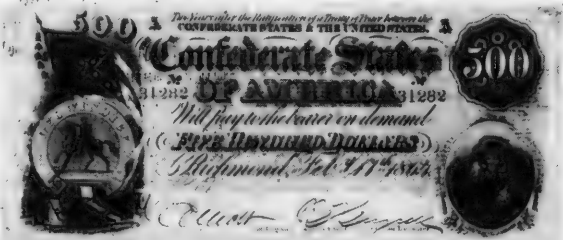 500 A Two Years after the Ratification of a Treaty of Peace between the A
CONFEDERATE STATES & THE UNITED STATES.
Confederate States
500
No No
31282 OF AMERICA 31282
Will pay to the bearer on demand
FIVE HUNDRED DOLLARS
Richmond, Feb. 17th, 1864